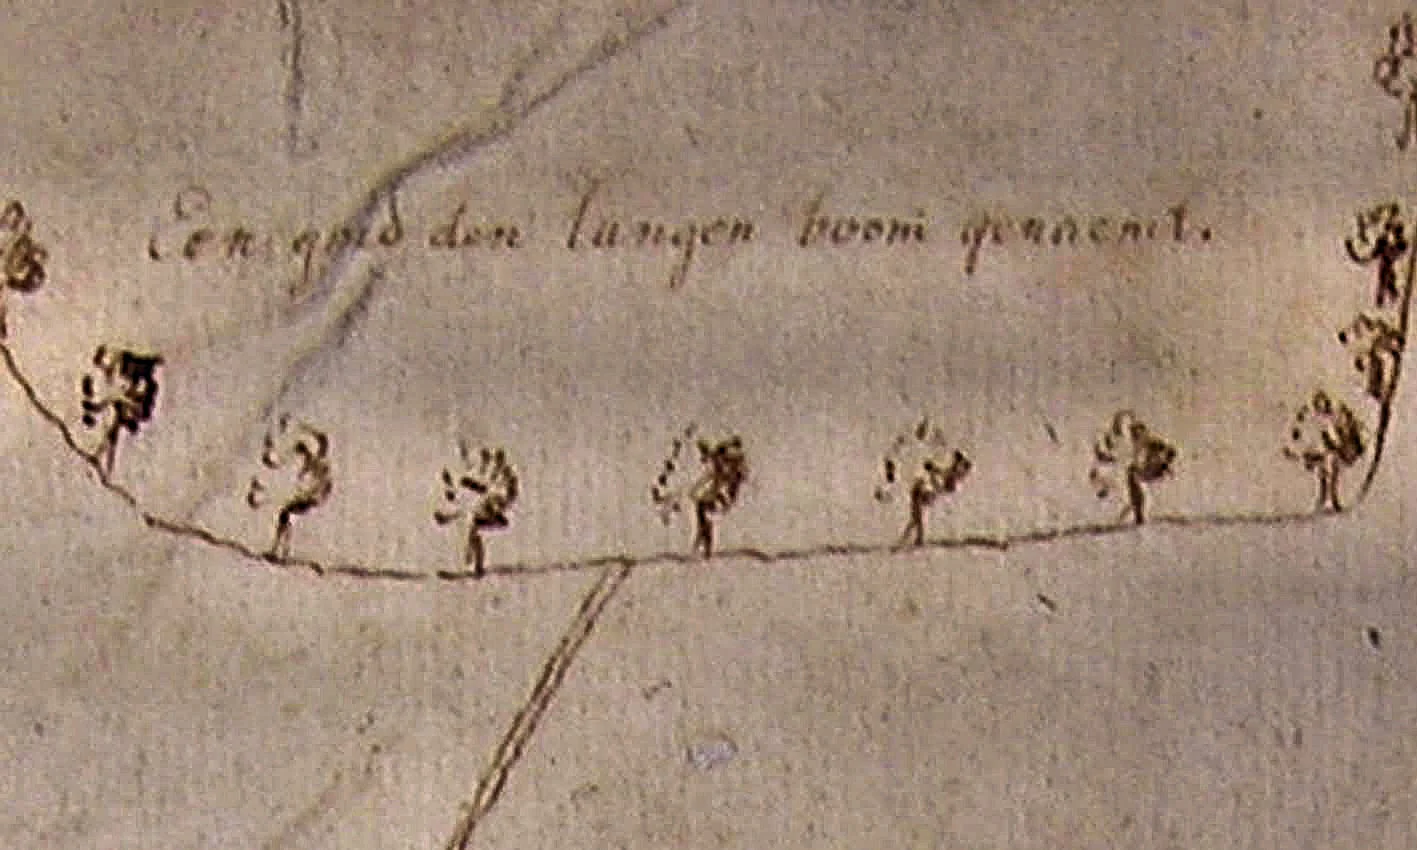 Een goed den langen boom genaemt.